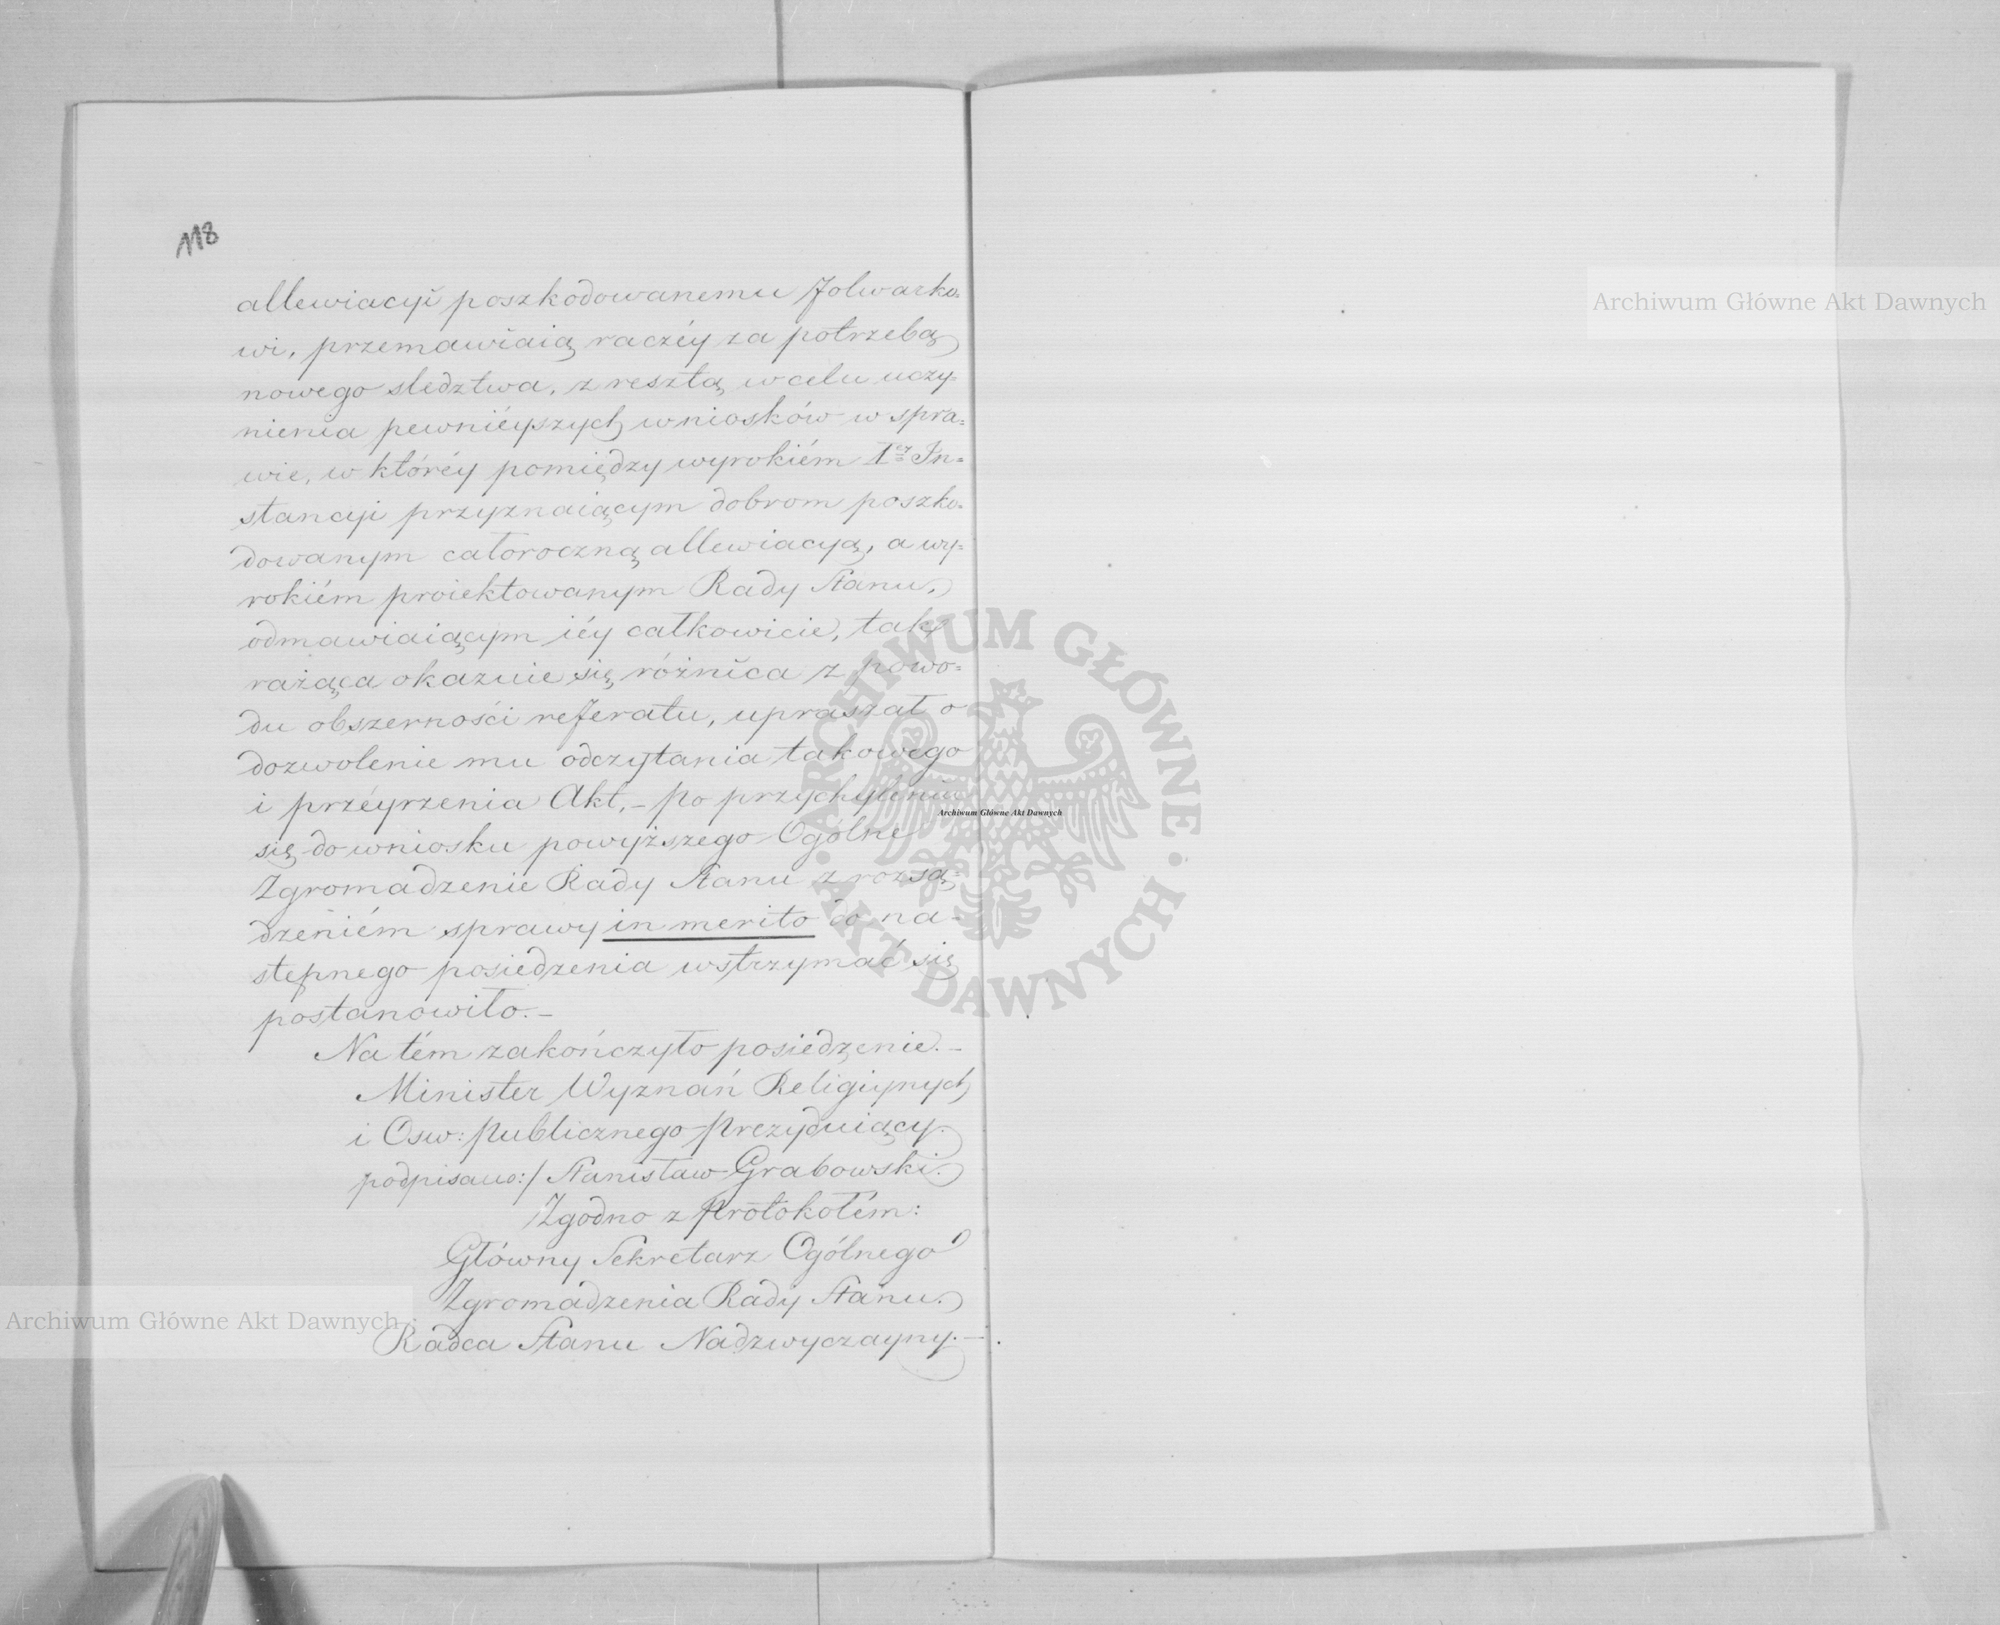 118
allewiacyi poszkodowanemu folwarko=
wi, przemawiaią raczéy za potrzebą
nowego sledztwa, z resztą w celu uczy=
nienia pewniéyszych wniosków w spra=
wie, w któréy pomiędzy wyrokiém Iey In=
stancyi przyznaiącym dobrom poszko=
dowanym całoroczną allewiacyą, a wy=
rokiém proiektowanym Rady Stanu,
odmawiaiącym iéy całkowicie, tak
rażąca okazuie się różnica z powo=
du obszerności referatu, upraszał o
dozwolenie mu odczytania takowego
i przéyrzenia Akt, – po przychyleniu
się do wniosku powyższego Ogólne
Zgromadzenie Rady Stanu z rozsą=
dzeniém sprawy in merito do na=
stępnego posiedzenia wstrzymać się
postanowiło. –
Na tém zakończyło posiedzenie. –
Minister Wyznań Religiynych
i Osw: publicznego prezyduiący.
podpisano:/ Stanisław Grabowski.
Zgodno z Protokołém:
Główny Sekretarz Ogólnego
Zgromadzenia Rady Stanu.
Radca Stanu Nadzwyczayny. –
Archiwum Główne Akt Dawnych
Archiwum Główne Akt Dawnych
Archiwum Główne Akt Dawnych
ARCHIWUM GŁÓWNE
AKT DAWNYCH